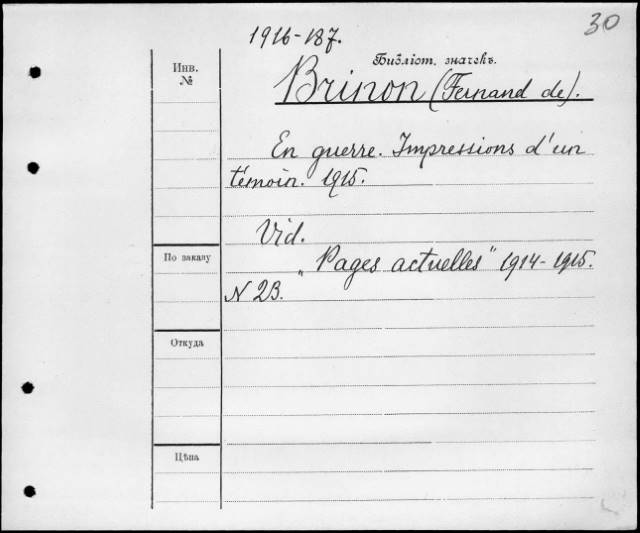 30
1916-187.
Библіот. значекъ.
Инв.
№
Brinon (Fernand de).
En guerre. Impressions d'un
témoin. 1915.
Vid.
По заказу
„Pages actuelles" 1914-1915.
N 23.
Откуда
Цѣна